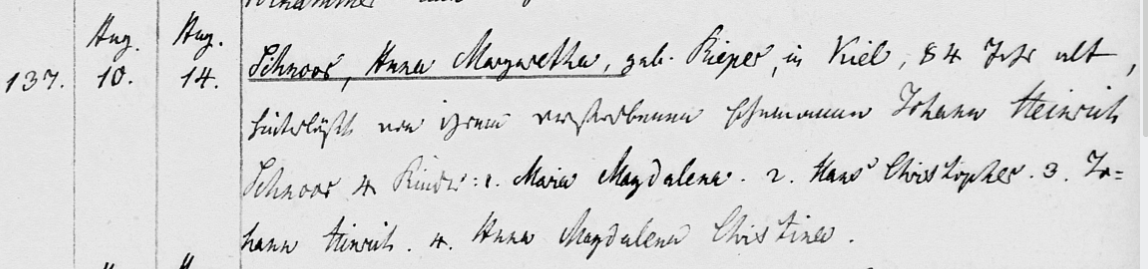 Aug. Aug.
137. 10. 14. Schnoor, Anna Margaretha, geb. Rieper, in Kiel, 84 Jahr alt,
hinterläßt von ihrem verstorbenen Ehemann Johann Heinrich
Schnoor 4 Kinder: 1. Maria Magdalena. 2. Hans Christopher. 3. Jo=
hann Heinrich. 4. Anna Magdalena Christina.